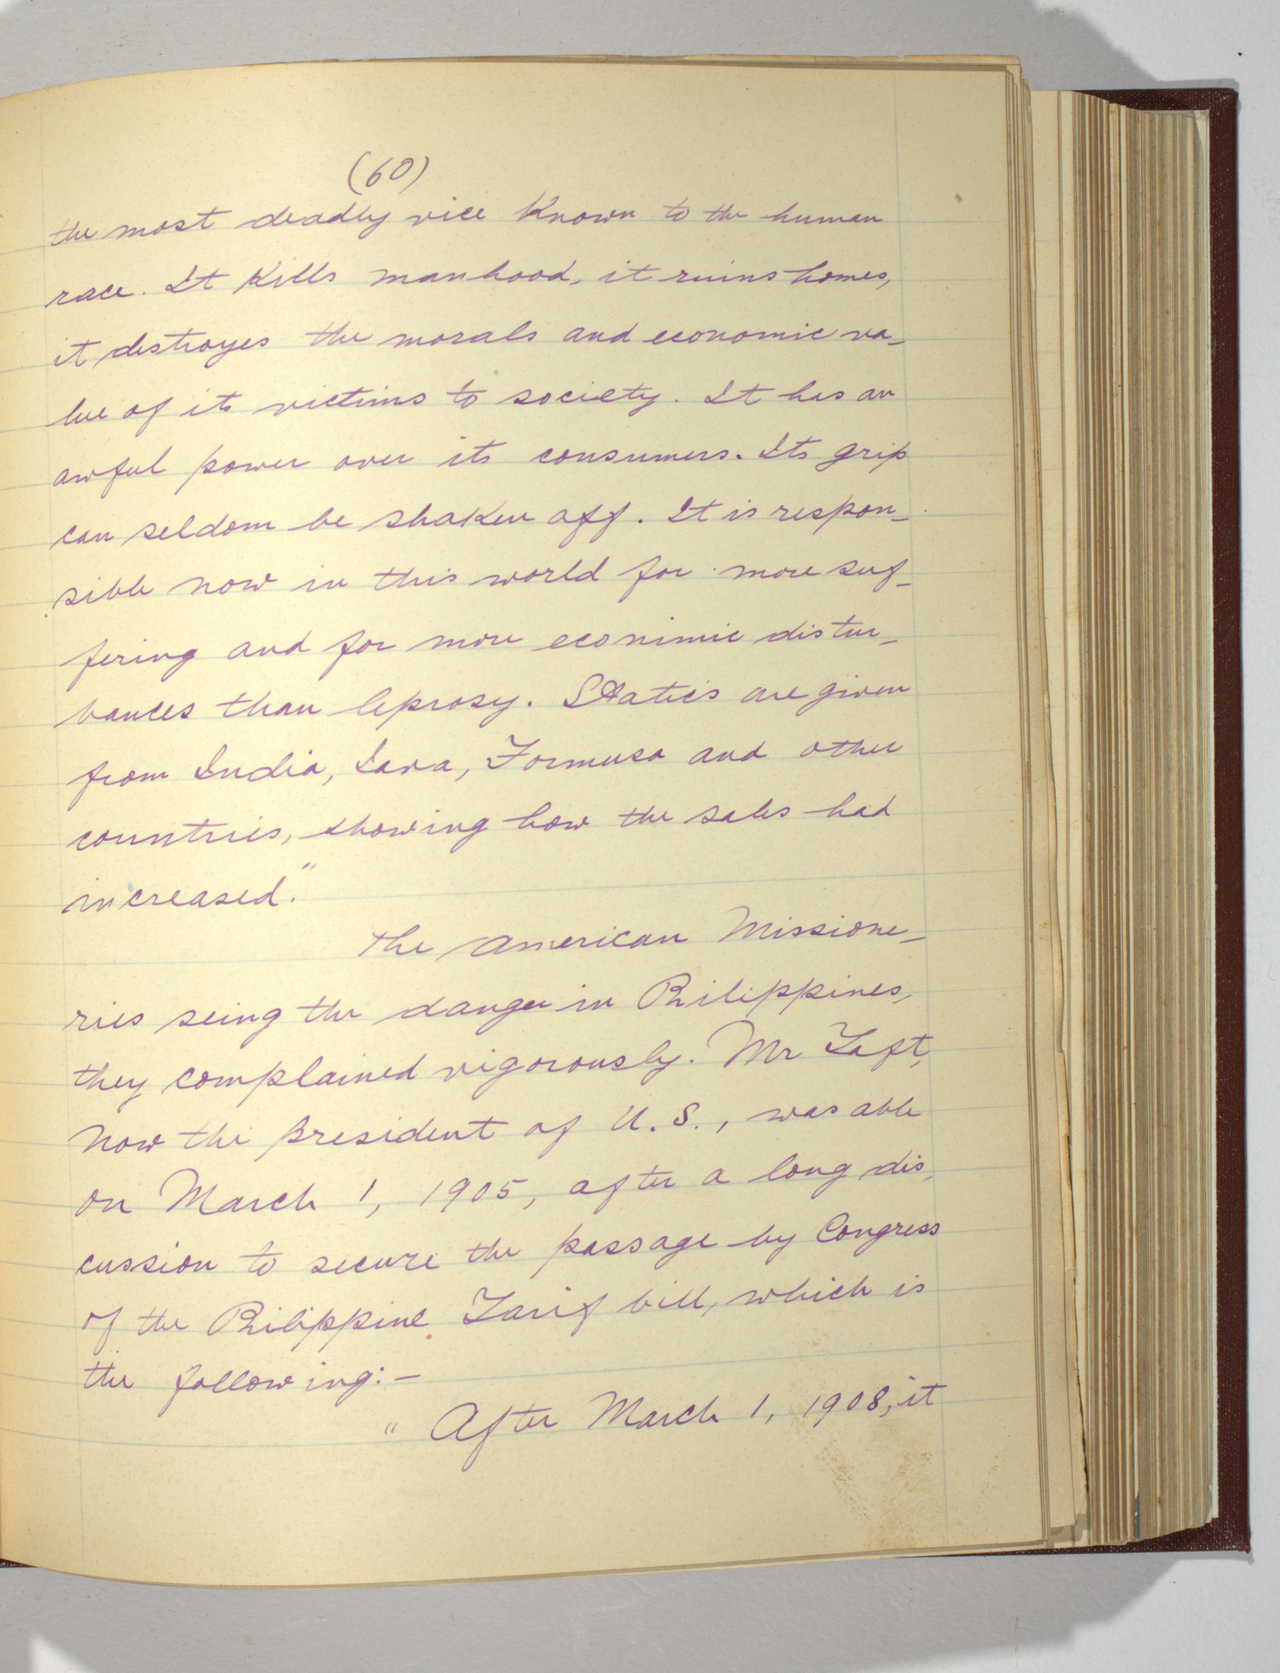 (60)
the most deadly vice Known to the human
race. It Kills manhood, it ruins homes,
it distroyes the morals and economic va-
lue of its victims to society. It has an
awful power over its consumers. Its grip
can seldom be shaken off. It is respon-
sible now in this world for more suf-
fering and for more econimic distur-
bances than leprosy. Statics are given
from India, Java, Formusa and other
countries, showing how the sales had
increased."
The American Missione-
ries seing the danger in Philippines,
they complained vigorously. Mr Taft,
now the president of U.S., was able
on March 1, 1905, after a long dis-
cussion to secure the passage by Congress
of the Philippine Tarif bill, which is
the following:-
" After March 1, 1908, it